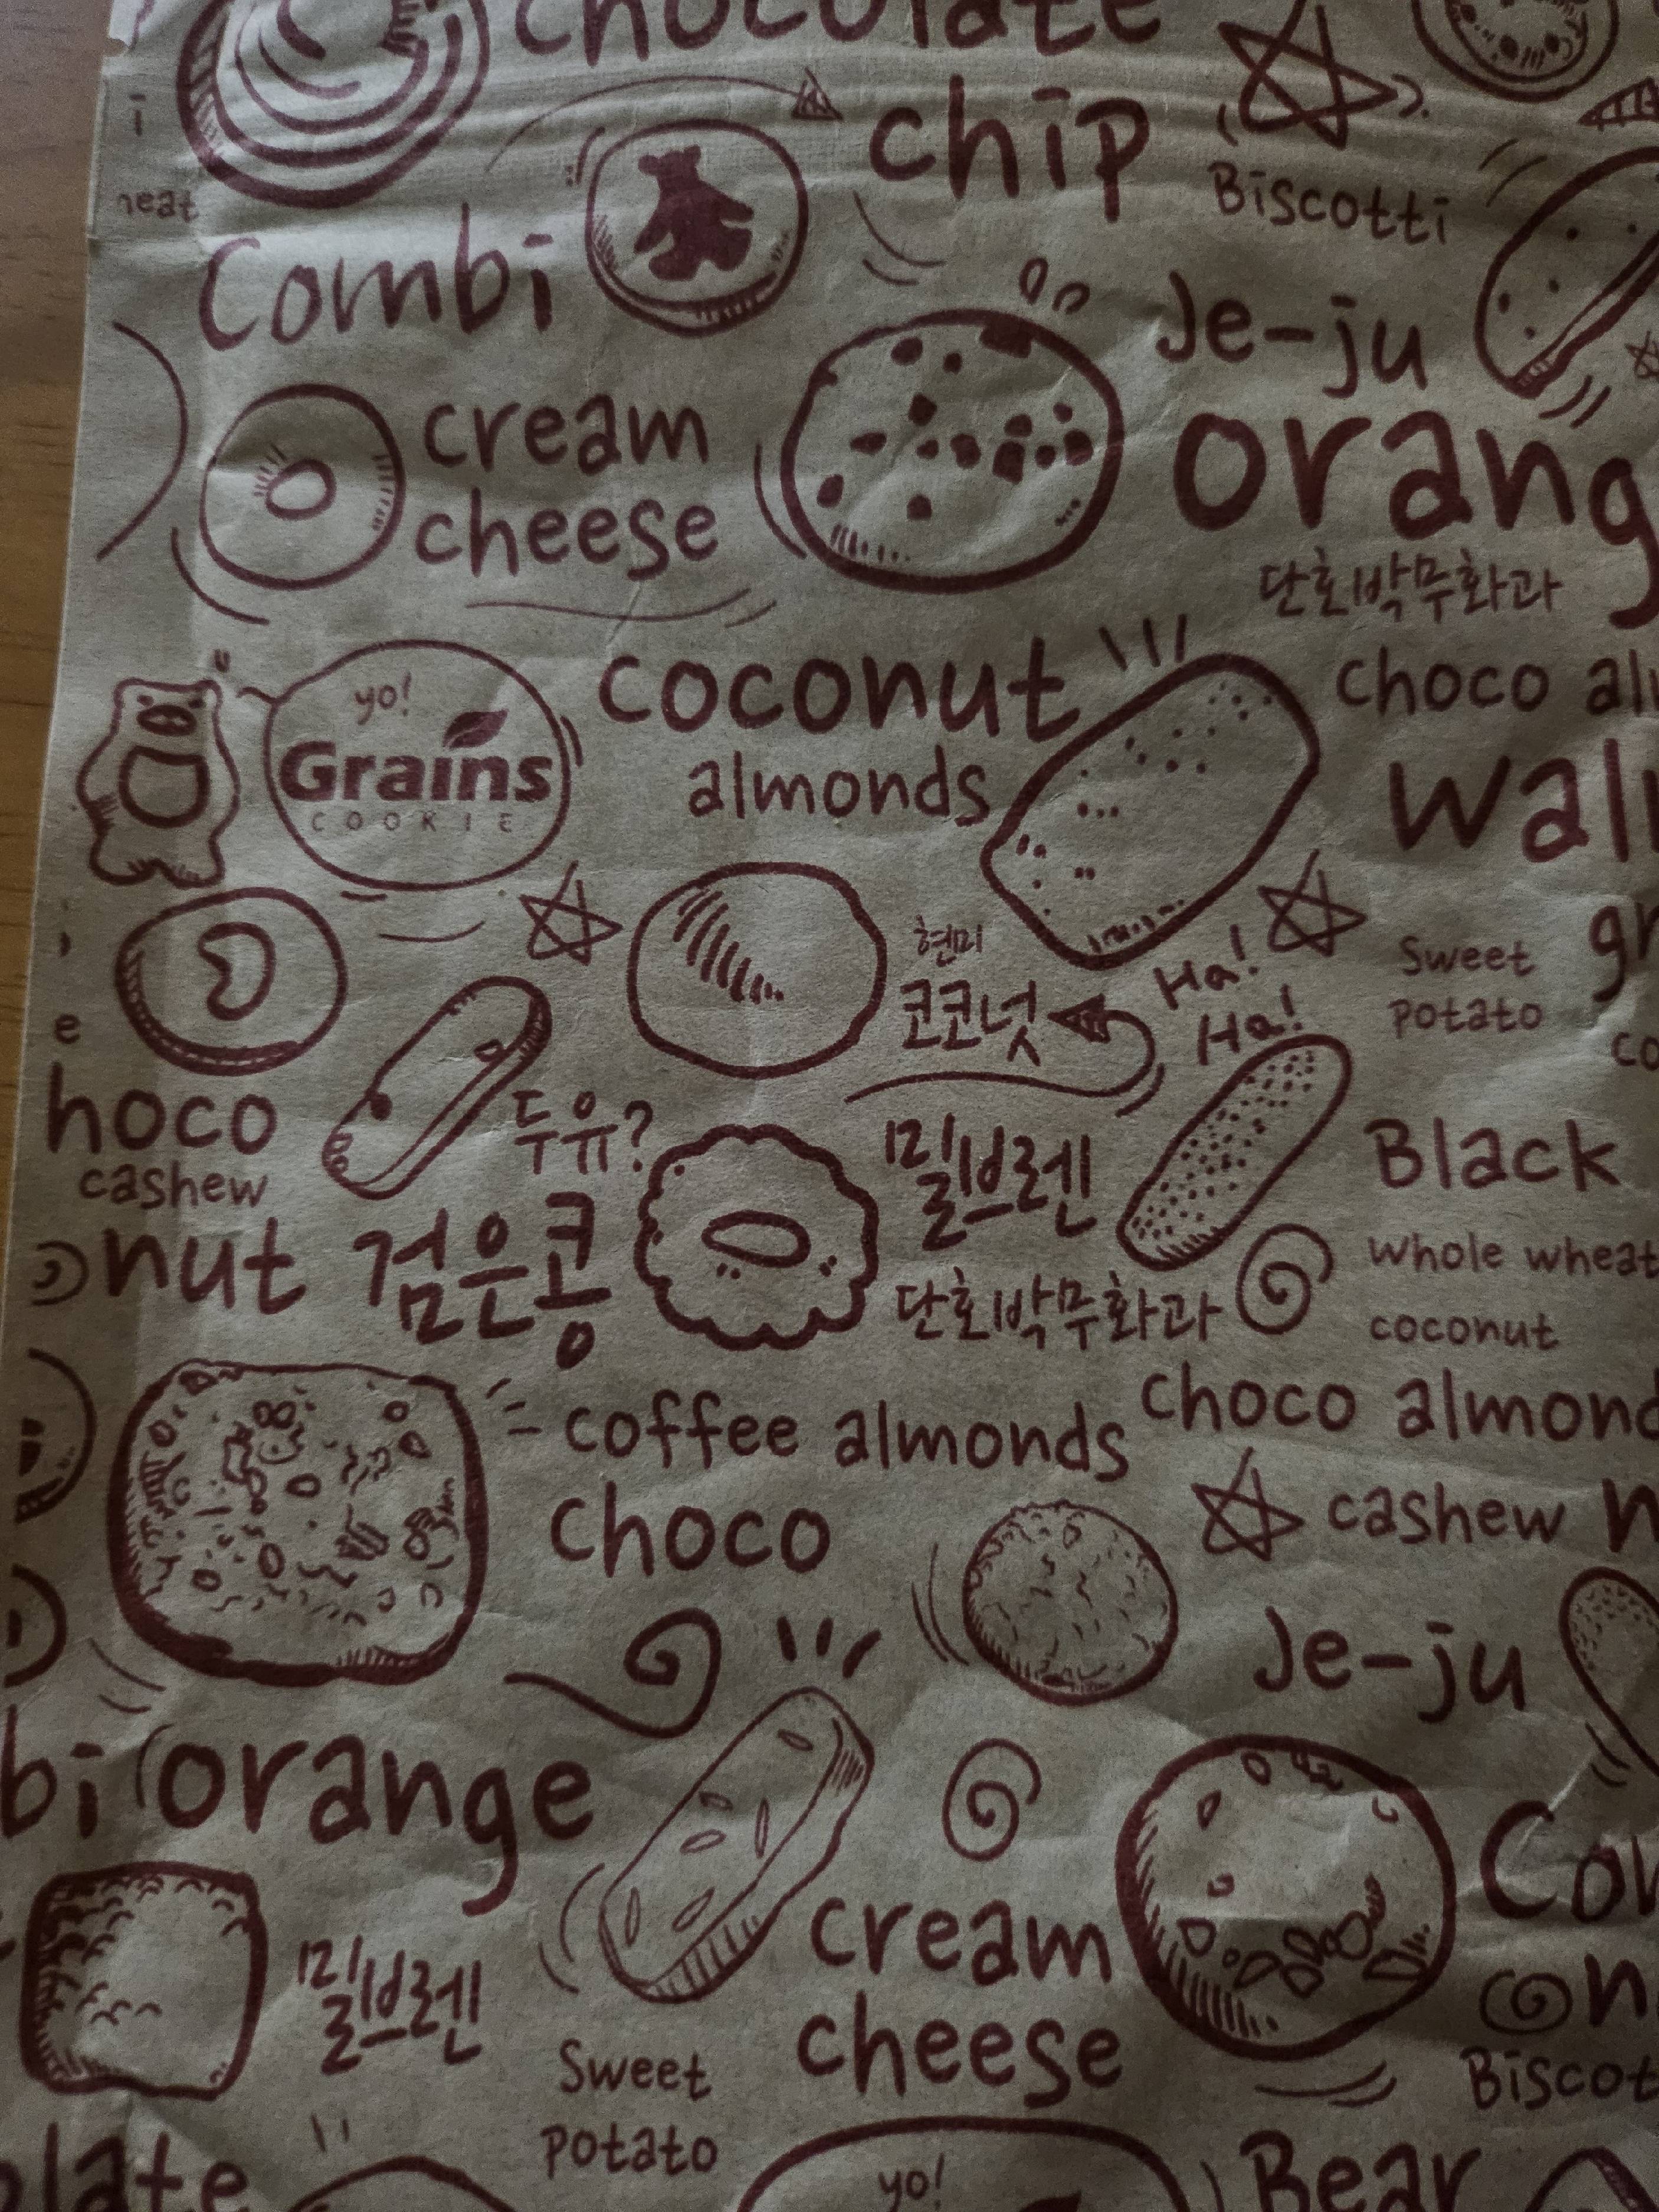 chocolate
chip
Biscotti
Combi
Je-ju
cream
cheese
단호박무화과
yo!
Grains
COOKIE
coconut
almonds
choco
현미
코코넛
Ha!
Ha!
Sweet
potato
hoco
cashew
nut
두유?
검은콩
밀브렌
단호박무화과
Black
whole wheat
coconut
coffee almonds
choco
choco almond
cashew
Je-ju
bi
orange
밀브렌
Sweet
potato
cream
cheese
Biscot
late
yo!
Bear